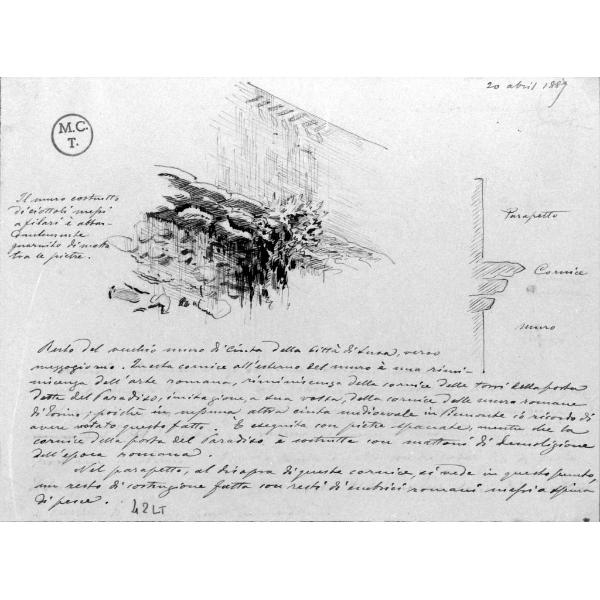 20 abril 1889
M.C.
T.
Il muro costrutto
di ciottoli messi
a filari è abban-
dantemente
guarnito di malta
tra le pietre.
Parapetto
Cornice
muro
Resto del vecchio muro di Cinta della Città di Susa, verso
mezzogiorno. Questa cornice all'esterno del muro è una remi-
niscenza dell'arte romana, reminiscenza della cornice delle torri della porta
detta del Paradiso; imitazione, a sua volta, della cornice delle mura romane
di Torino; poichè in nessuna altra cinta medioevale in Piemonte io ricordo di
avere notato questo fatto. È eseguita con pietre spaccate, mentre che la
cornice della porta del Paradiso è costrutta con mattoni di demolizione
dell'epoca romana.
Nel parapetto, al disopra di queste cornice, si vede in questo punto,
un resto di costruzione fatta con resti di embrici romani messi a spina
di pesce.
42 LT